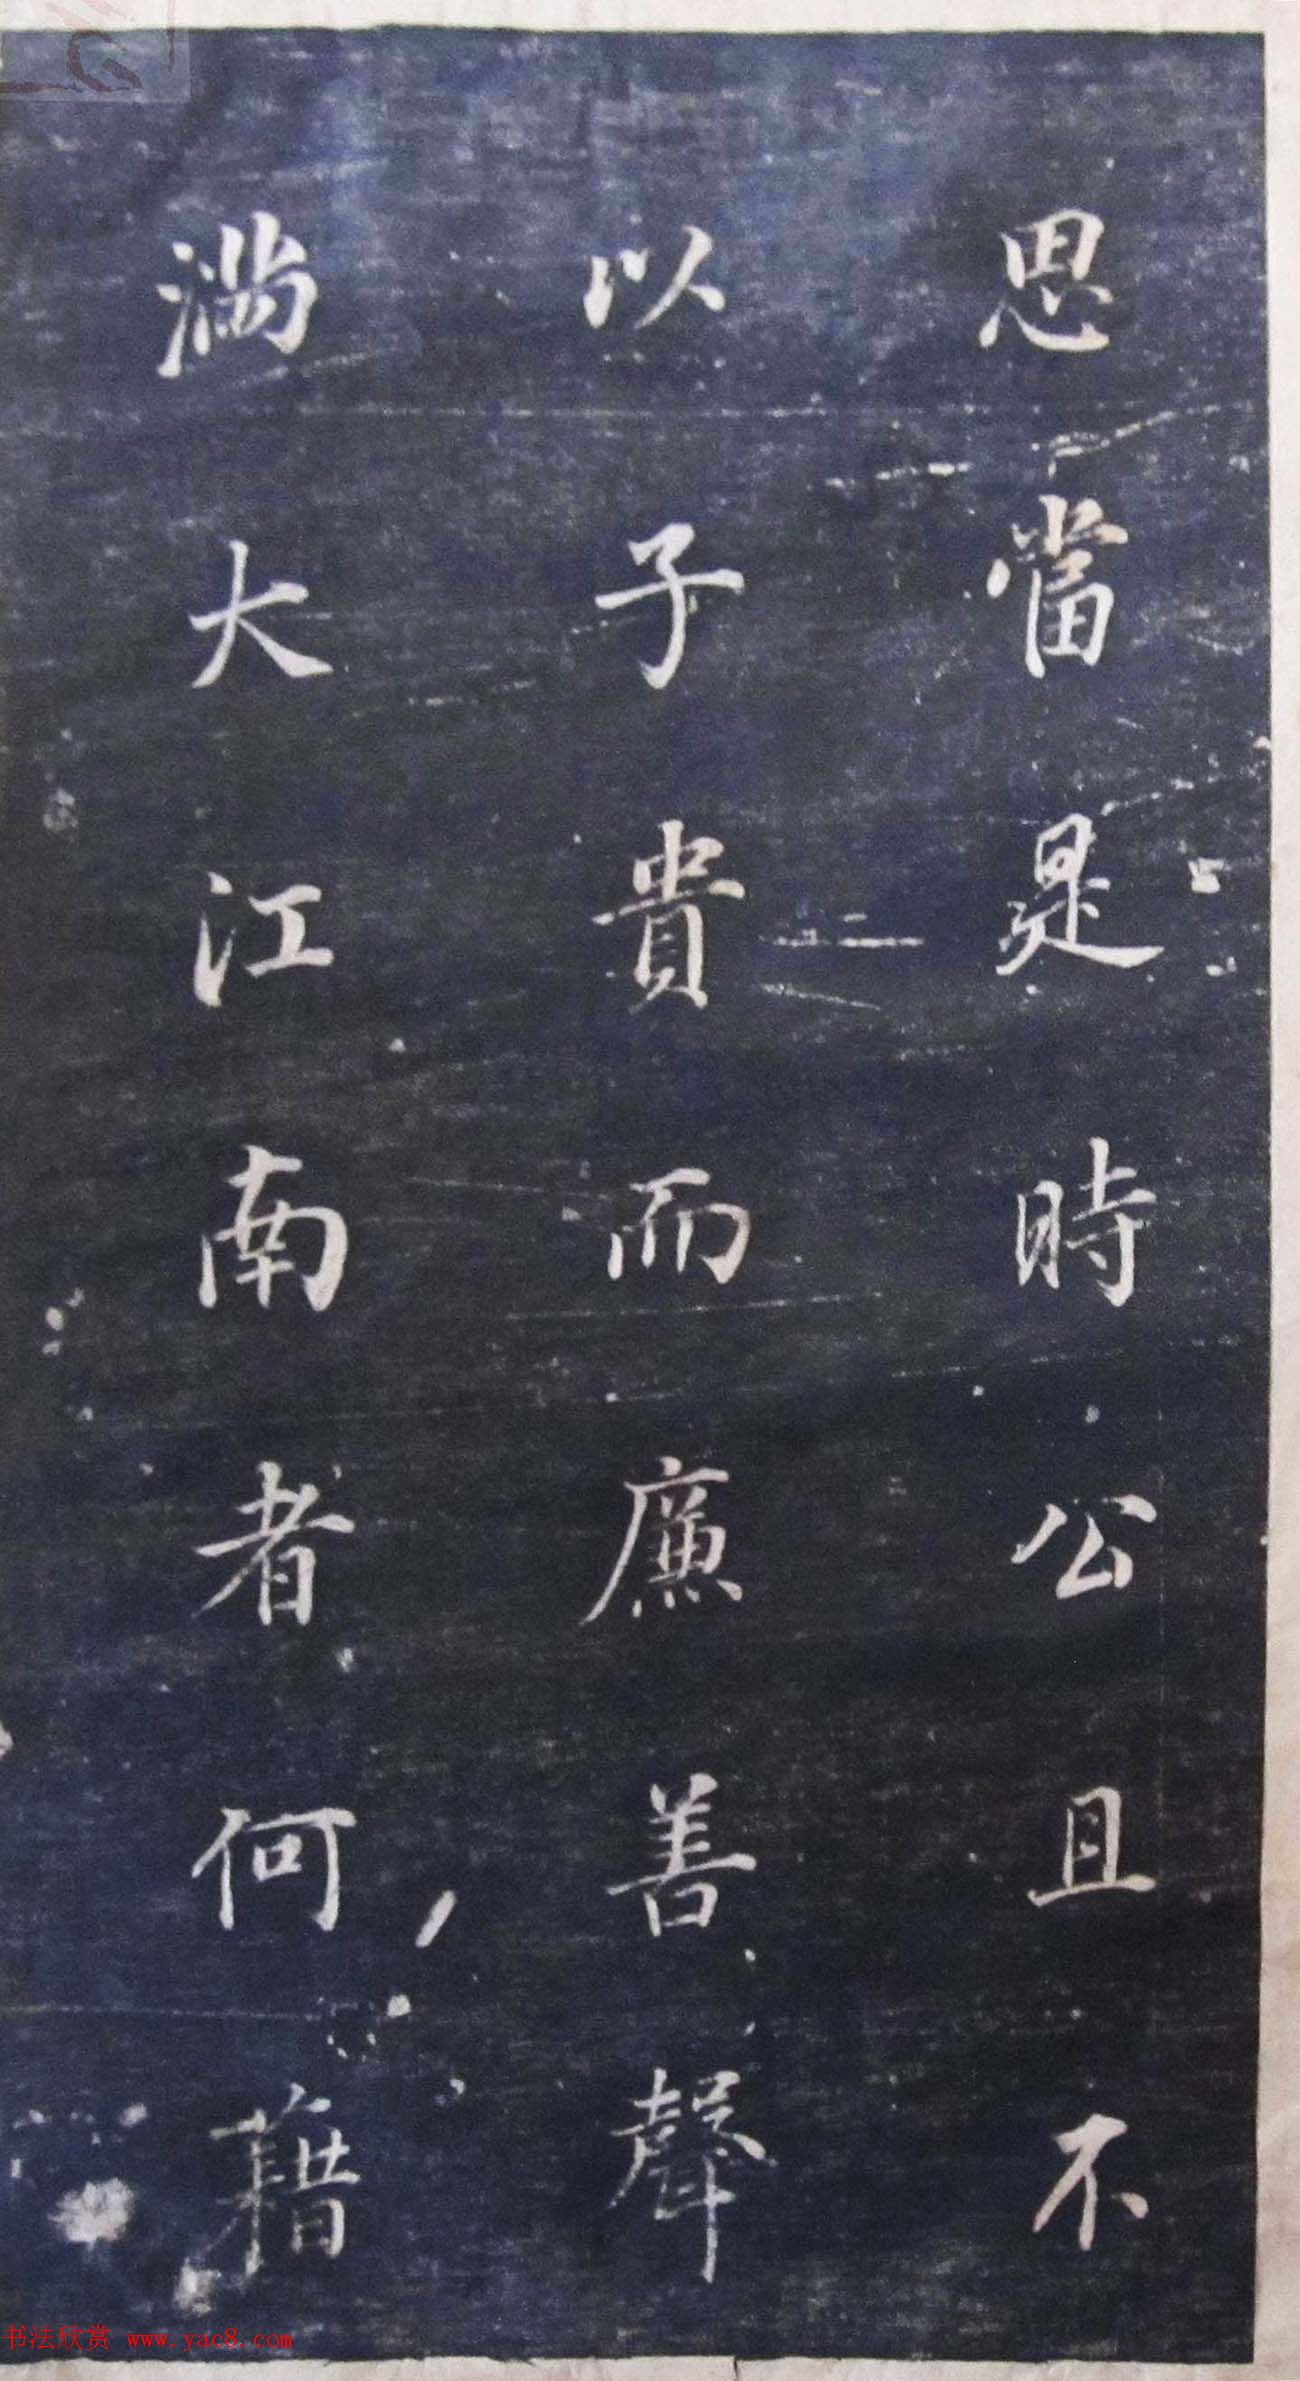 思當是時公且不
以子貴而廉善聲
滿大江南者何藉
书法欣赏 www.yac8.com